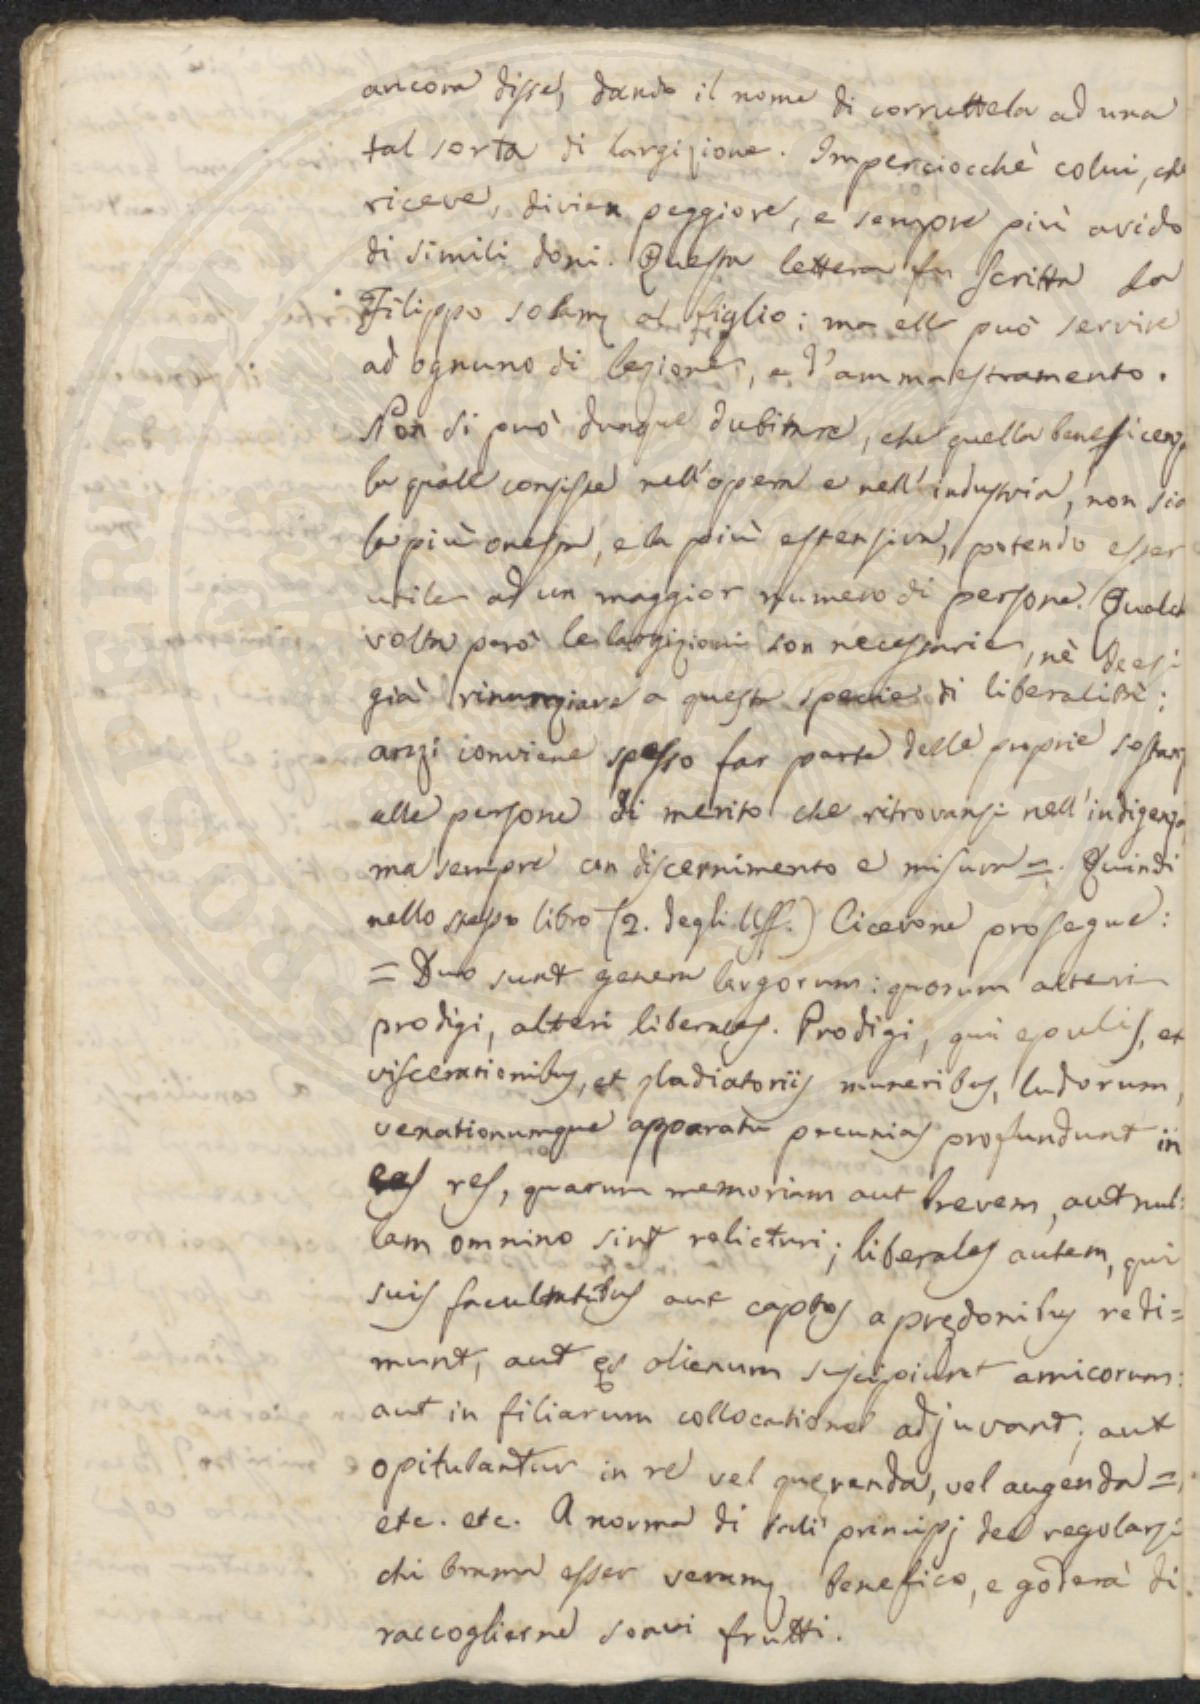 ancora disse, dando il nome di corruttela ad una
tal sorta di largizione. Imperciocchè colui, che
riceve, divien peggiore, e sempre più avido
di simili doni. Questa lettera fu scritta da
Filippo solamẽ al figlio; ma ella può servire
ad ognuno di lezione, e d'ammaestramento.
Non si può dunque dubitare, che quella beneficenza
la quale consiste nell'opera e nell'industria, non sia
la più onesta, e la più estensiva, potendo esser
utile ad un maggior numero di persone. Qualche
volta però le largizioni son necessarie, nè deesi
già rinunziare a questa specie di liberalità:
anzi conviene spesso far parte delle proprie sostanze
alle persone di merito che ritrovansi nell'indigenza
ma sempre con discernimento e misura =. Quindi
nello stesso libro (2. degli Uff.) Cicerone prosegue:
= Duo sunt genera largorum: quorum alteri
prodigi, alteri liberales. Prodigi, qui epulis, et
viscerationibus, et gladiatoriis muneribus, ludorum,
venationumque apparatu pecunias profundunt in
eas res, quarum memoriam aut brevem, aut nul:
lam omnino sint relicturi; liberales autem, qui
suis facultatibus aut captos a prędonibus redi=
munt, aut ęs alienum suscipiunt amicorum:
aut in filiarum collocatione adjuvant; aut
opitulantur in re vel quęrenda, vel augenda =,
etc. etc. A norma di tali principj dee regolarsi
chi brama esser veramẽ benefico, e goderà di
raccogliesne soavi frutti.